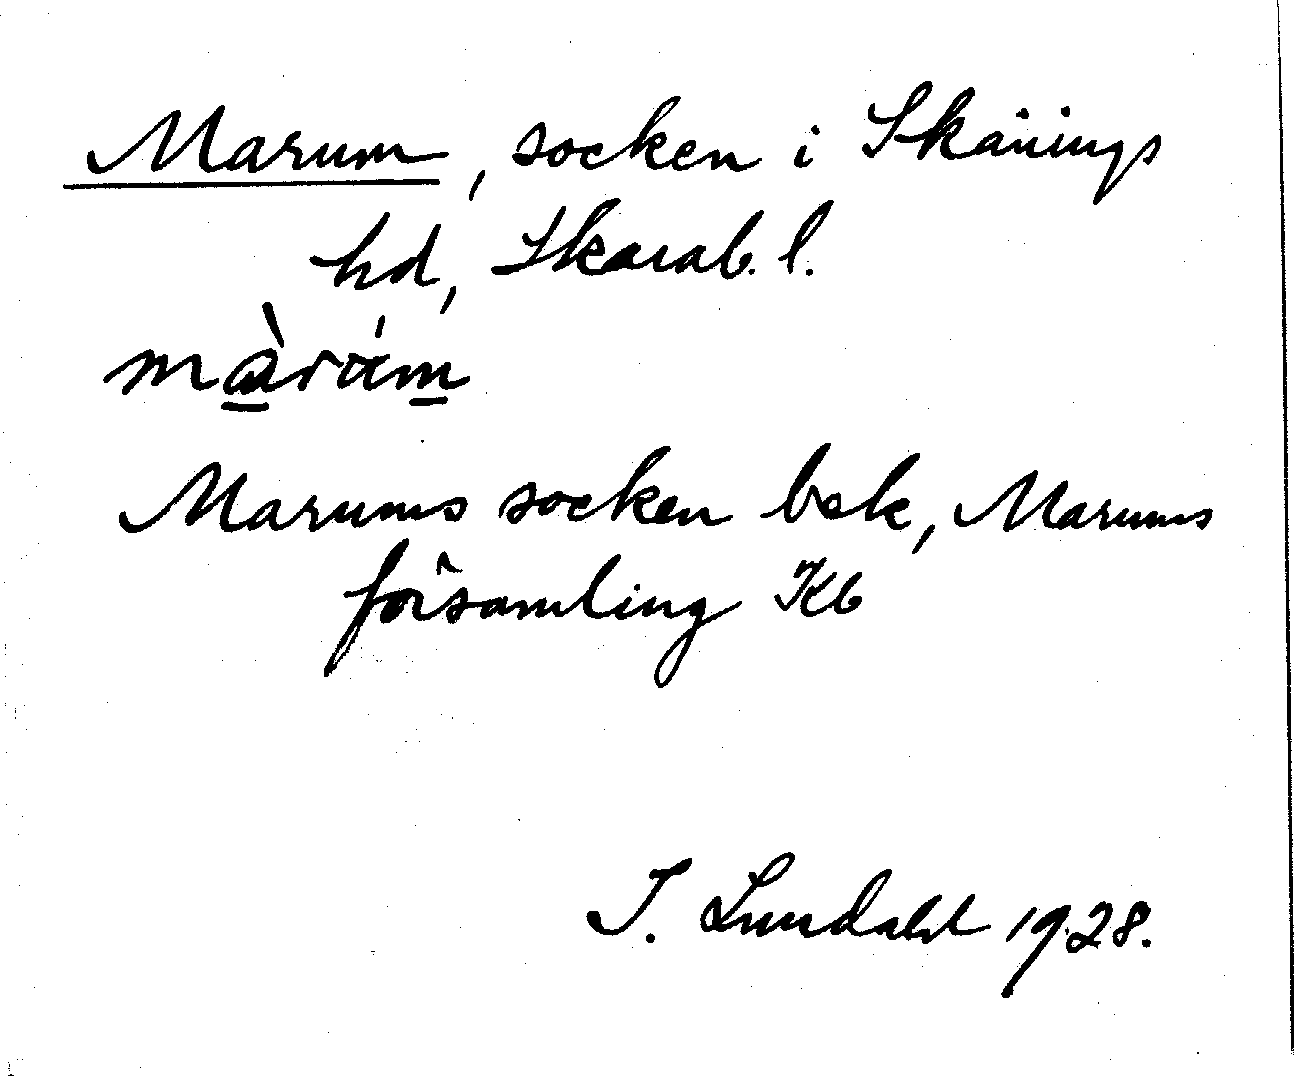 Marum, socken i Skånings
hd, Skarab. l.
màrám
Marums socken bek, Marums
församling Kb
I. Lundahl 1928.